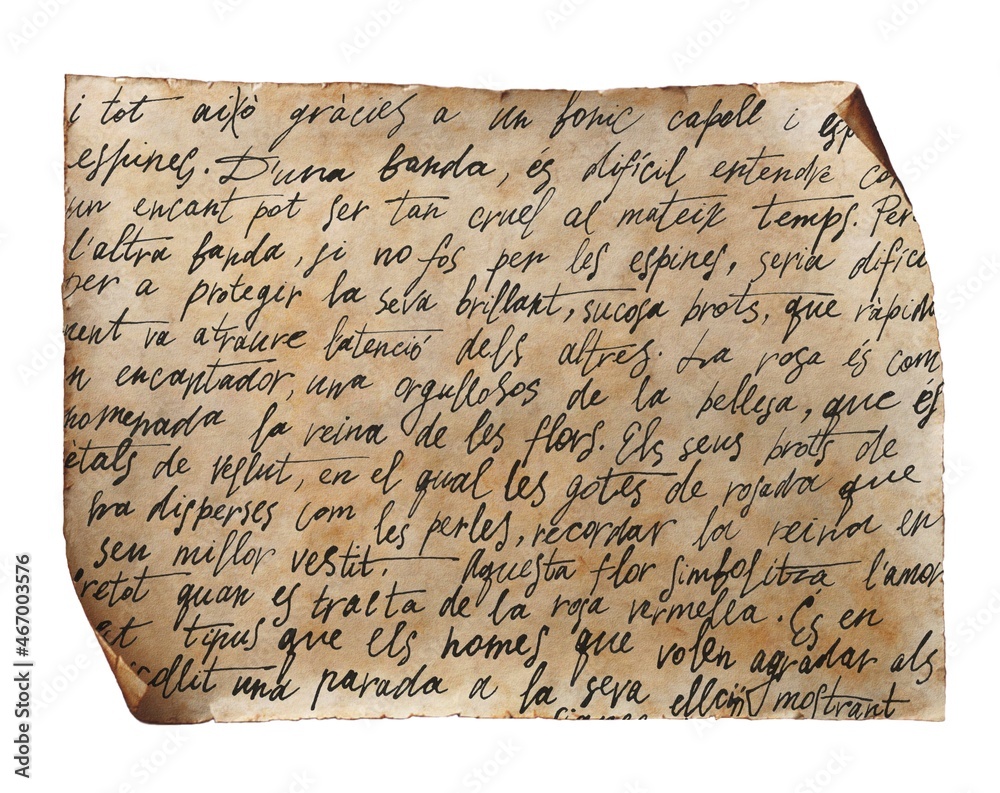 i tot això gràcies a un bonic capoll i esp
espines. D'una banda, és difícil entendre co
un encant pot ser tan cruel al mateix temps. Per
l'altra banda, si no fos per les espines, seria difíci
per a protegir la seva brillant, sucosa brots, que ràpida
ment va atraure latenció dels altres. La rosa és com
n encantador, una orgullosos de la bellesa, que és
nomenada la reina de les flors. Els seus brots de
ètals de vellut, en el qual les gotes de rosada que
ha disperses com les perles, recordar la reina en
seu millor vestit. Aquesta flor simbolitza l'amor
retot quan es tracta de la rosa vermella. És en
at tipus que els homes que volen agradar als
ollit una parada a la seva mostrant
Adobe Stock | #467003576